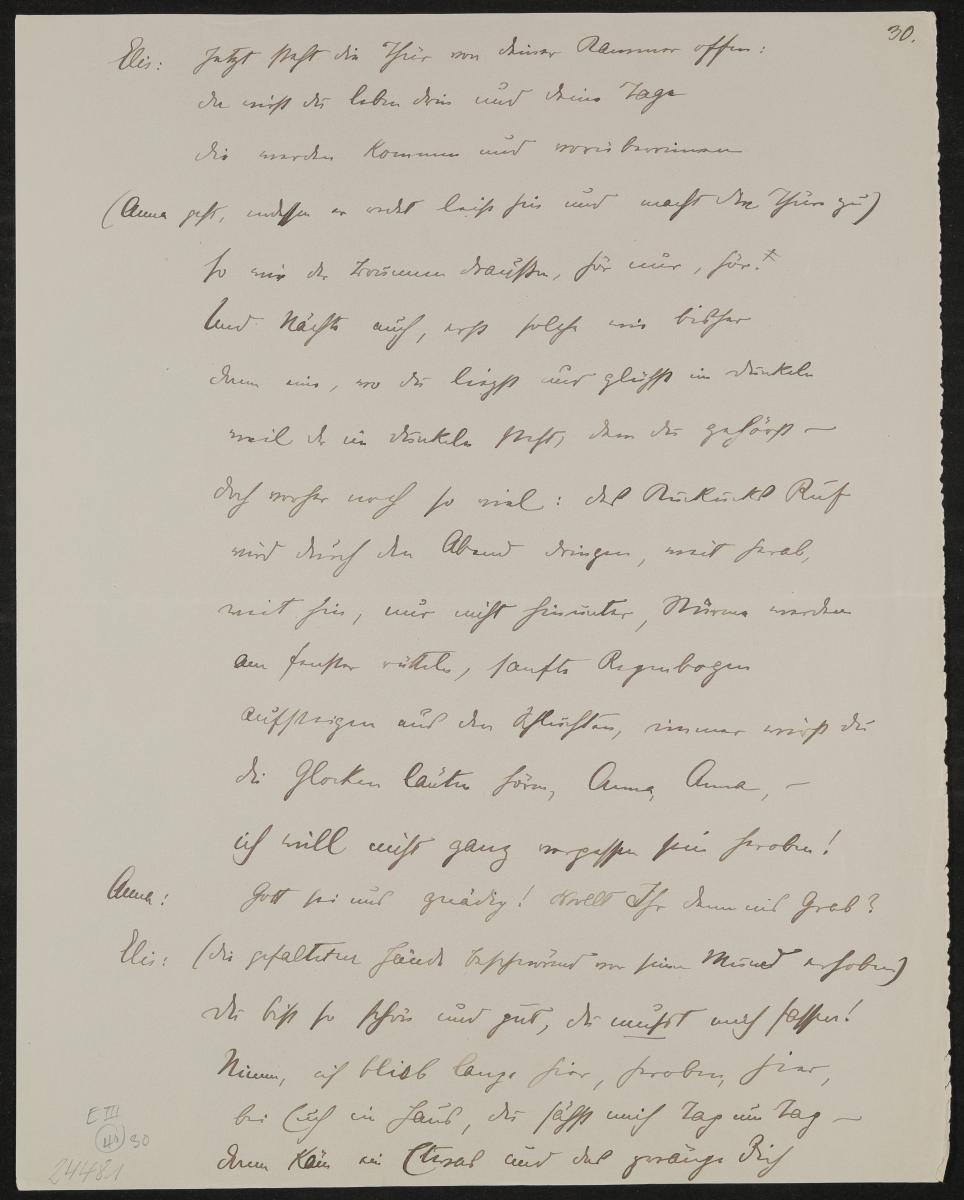 30.
Elis: Jetzt steht die Thür von deiner Kammer offen:
du wirst da leben drin und deine Tage
die werden kommen und vorüberrinnen
(Anna geht, indessen er redet leise hin und macht die Thüre zu)
so wie der Brunnen draußen, hör nur, hör!
Und Nächte auch, erst solche wie bisher
dann eine, wo du liegst und glühst im dunkeln
weil der im dunkeln steht, dem du gehörst –
doch vorher noch so viel: des Kukucks Ruf
wird durch den Abend dringen, weit herab,
weit hin, nur nicht hinunter, Stürme werden
am Fenster rütteln, sanfte Regenbogen
aufsteigen aus den Schluchten, immer wirst du
die Glocken läuten hören, Anna, Anna, –
ich will nicht ganz vergessen sein heroben!
Anna: Gott sei uns gnädig! Wollt Ihr denn ins Grab?
Elis: (die gefalteten Hände beschwörend vor seinen Mund erhoben)
du bist so schön und gut, du musst mich fassen!
Nimm, ich blieb lange hier, heroben, hier,
bei Euch im Haus, du sähst mich Tag um Tag –
dann käm ein Etwas und das zwänge Dich
E III
44 30
24481